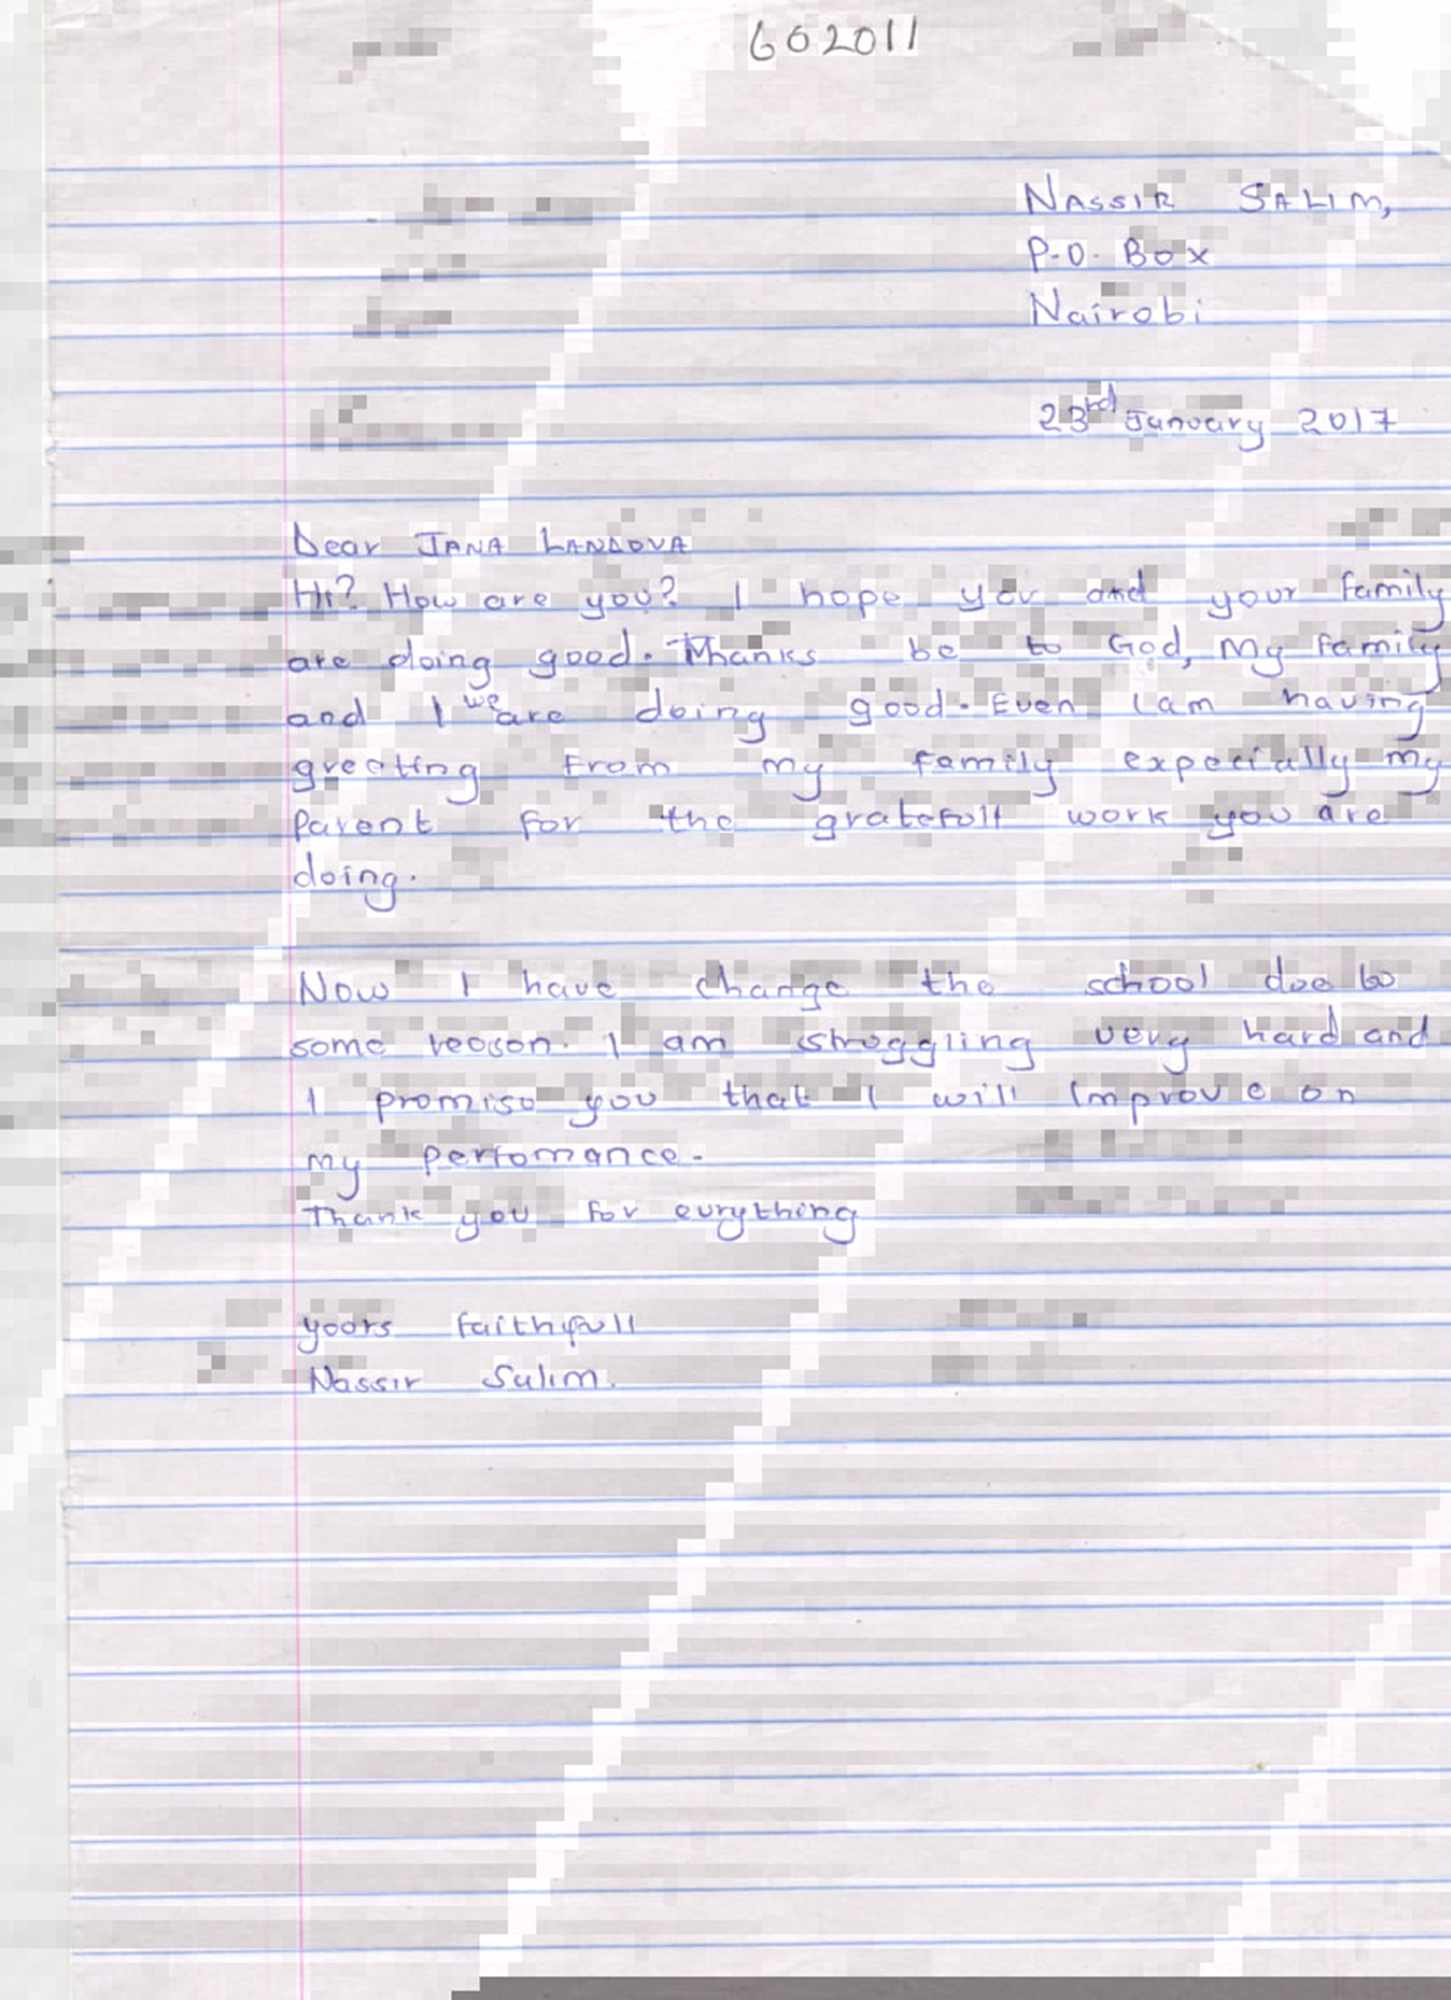 602011
NASSIR SALIM,
P.O. BOX
Nairobi
23rd January 2017
Dear JANA LANDOVA
Hi? How are you? I hope you and your family
are doing good. Thanks be to God, My family
and I we are doing good. Even I am having
greeting from my family expecially my
Parent for the gratefull work you are
doing.
Now I have change the school due to
some reason. I am struggling very hard and
I promise you that I will Improve on
my perfomance.
Thank you for evrything
yours faithfull
Nassir Salim.